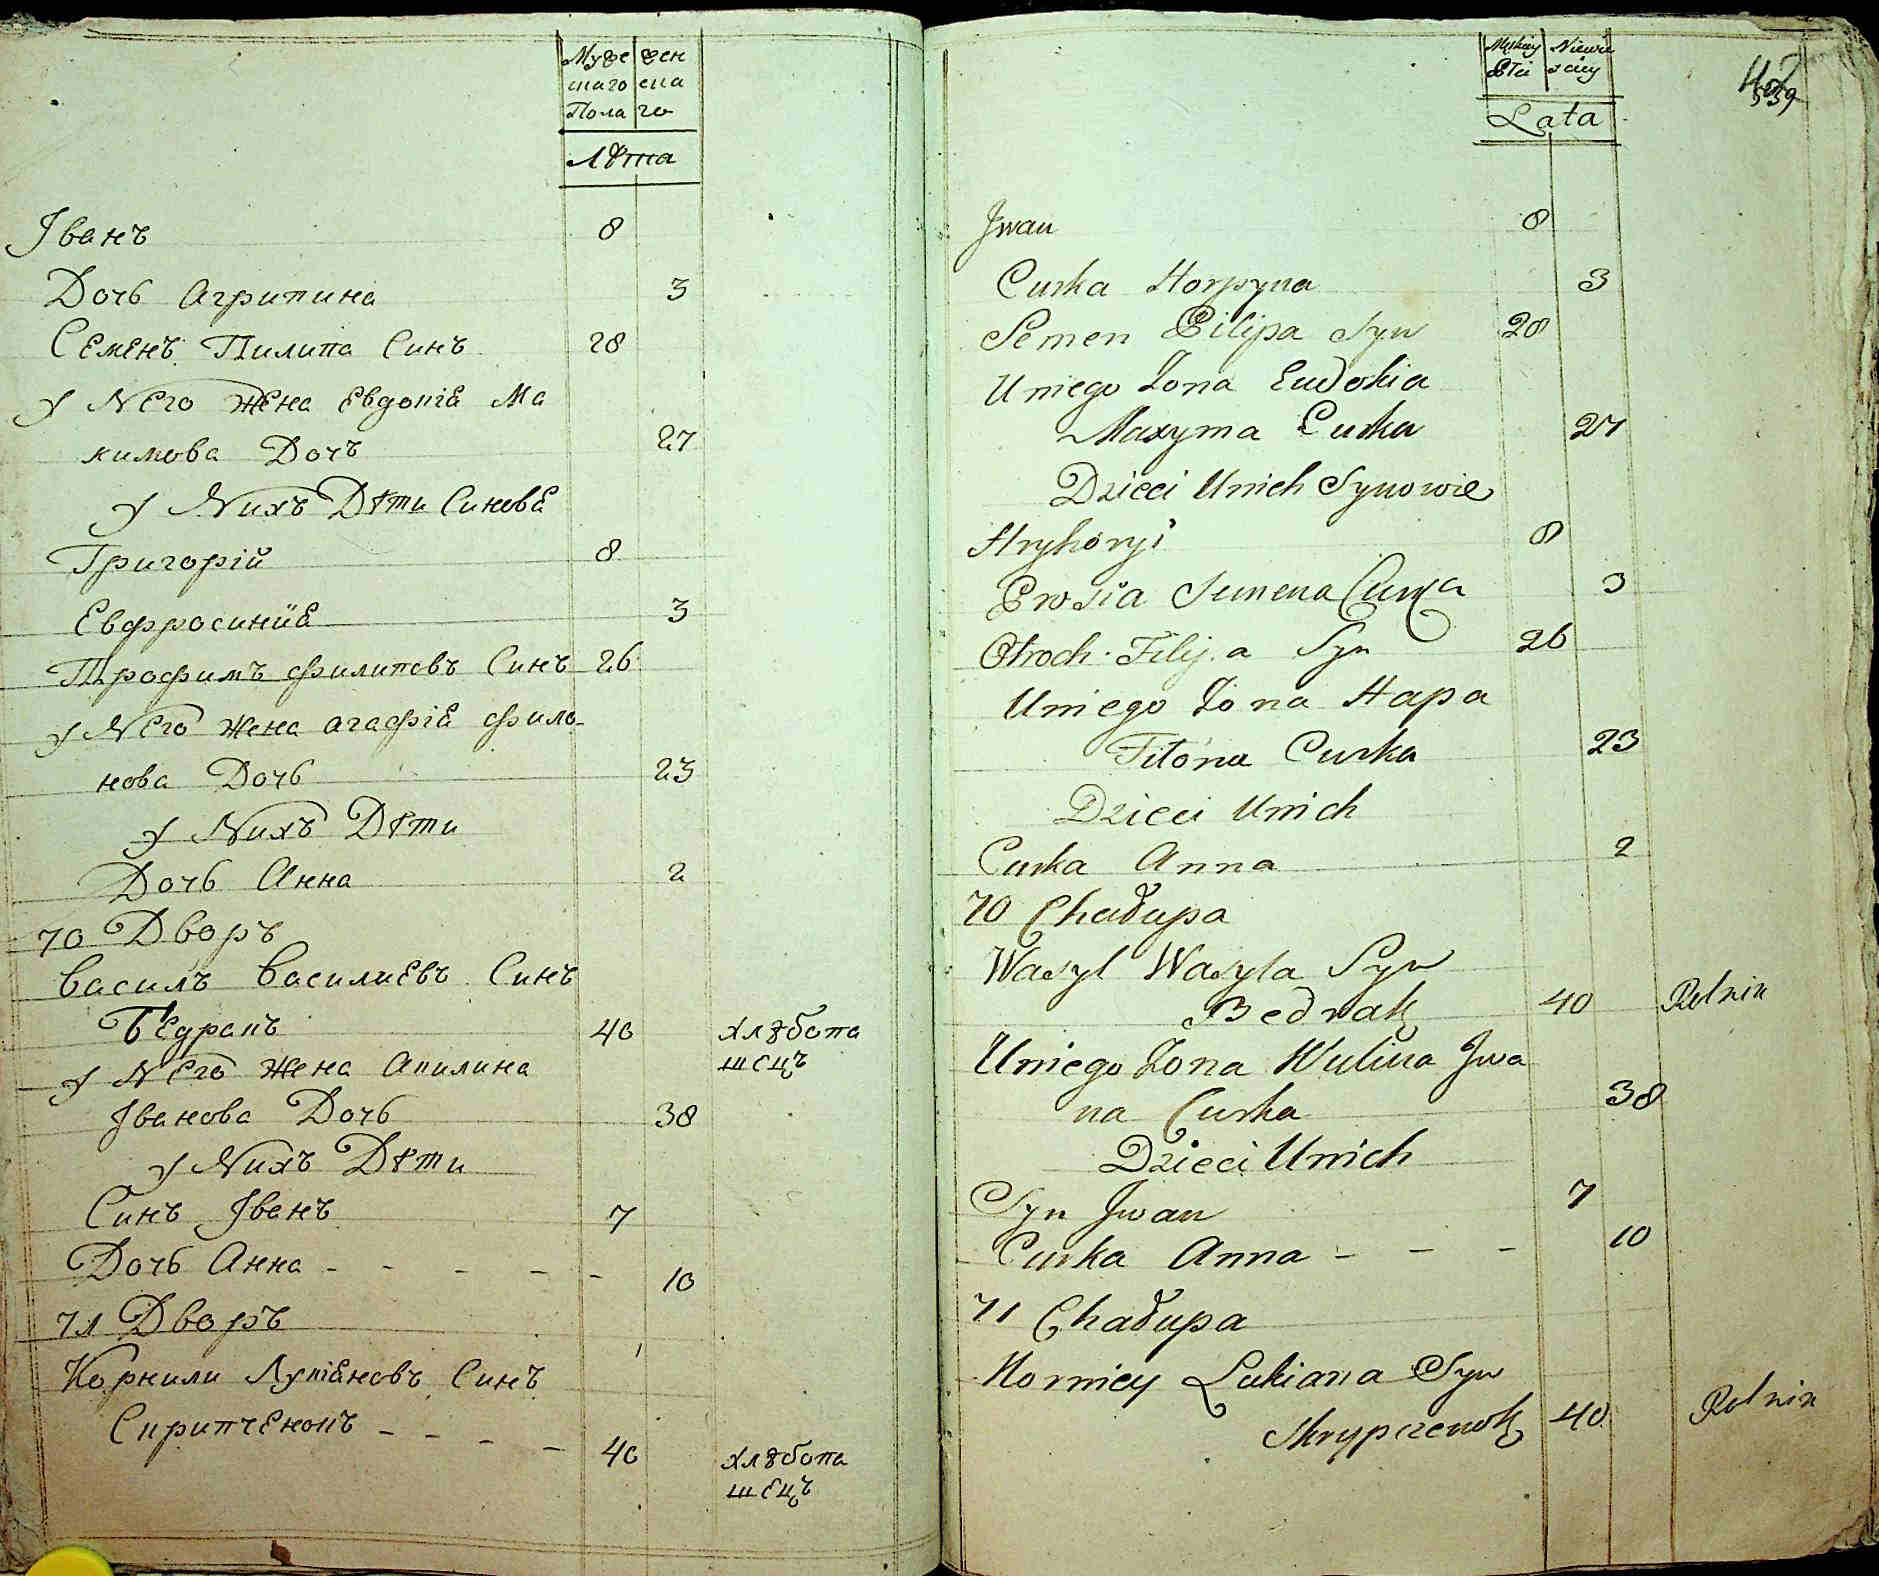 Муже жен
скаго ска
Пола го
Лѣта
Іванъ 8
Дочь Агрипина 3
Семенъ Пилипа Синъ 28
у Него жена Евдокіа Ма
кимова Дочъ 27
у Нихъ Дѣти Синова
Григорій 8
Евфросиніа 3
Трофимъ филиповъ Синъ 26
у Него жена агафіа фило-
нова Дочь 23
у Нихъ Дѣти
Дочь Анна 2
70 Дворъ
Василъ Василиевъ Синъ
Бедракъ 40 хлѣбопа
шецъ
у Него жена Акилина
Іванова Дочь 38
у Нихъ Дѣти
Синъ Іванъ 7
Дочь Анна - - - - - 10
71 Дворъ
Корнили Лукіановъ Синъ
Скрипченокъ - - - - 40 хлѣбопа
шецъ
Lata
Jwan 8
Curka Horpyna 3
Semen Pilipa Syn 28
Uniego Żona Eudokia
Maxyma Curka 27
Dzieci Unich Synowie
Hryhoryi 8
Prosia Semena Curka 3
Otroch. Filip.a Syn 26
Uniego Żona Hapa
Filona Curka 23
Dzieci Unich
Curka Anna 2
70 Chałupa
Wasyl Wasyla Syn
Bedrak 40 Rolnik
Uniego Żona Kulina Jwa
na Curka 38
Dzieci Unich
Syn Jwan 7
Curka Anna - - - 10
71 Chałupa
Korniey Lukiana Syn
Skrypczenok 40 Rolnik